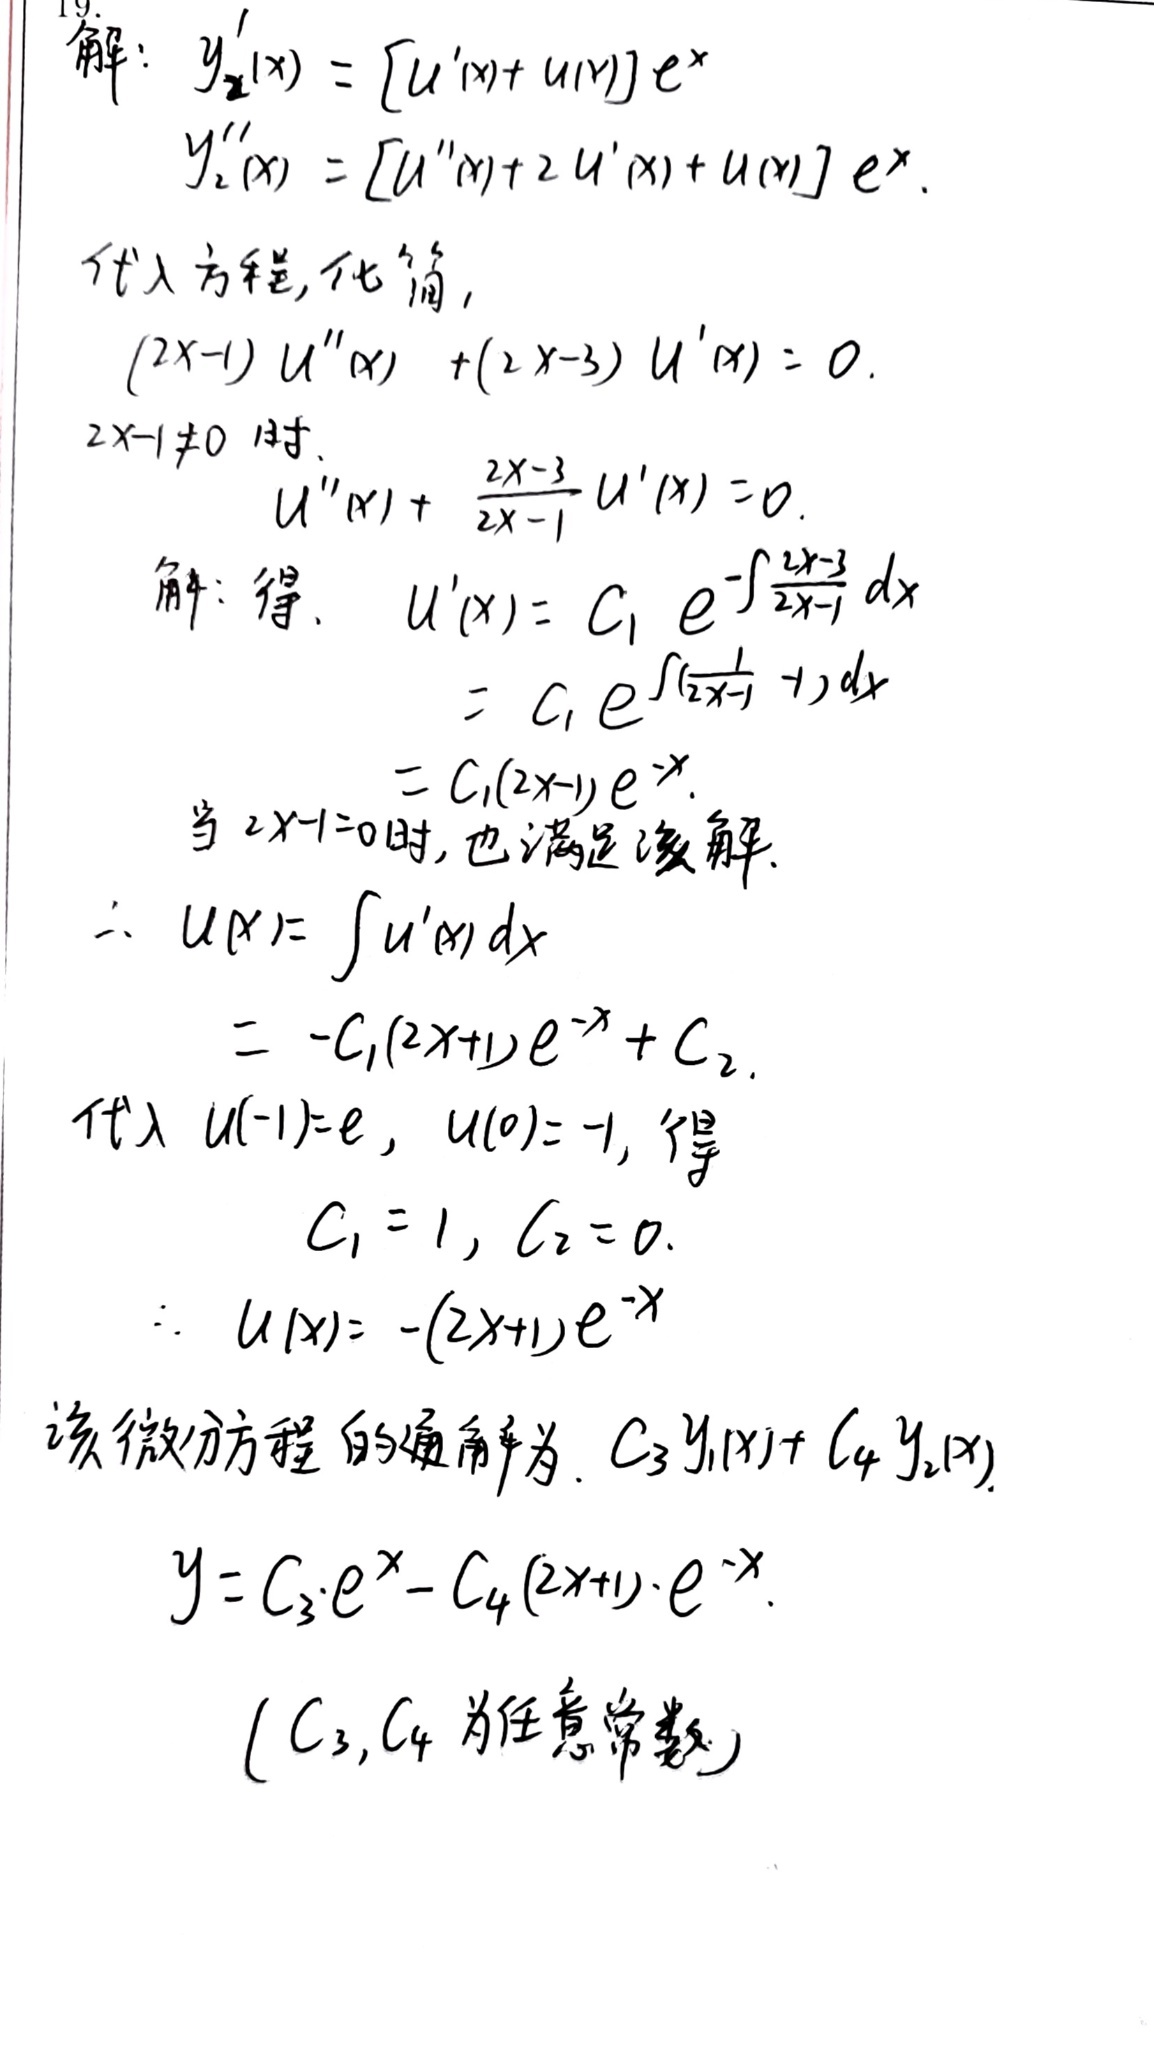 19.
解: y₂'(x) = [u'(x)+u(x)]eˣ
y₂''(x) = [u''(x)+2u'(x)+u(x)]eˣ.
代入方程,化简,
(2x-1)u''(x) +(2x-3)u'(x)=0.
2x-1≠0时.
u''(x)+ \frac{2x-3}{2x-1}u'(x)=0.
解:得. u'(x)= C₁ e^{-∫\frac{2x-3}{2x-1}dx}
= C₁ e^{∫(\frac{1}{2x-1}-1)dx}
= C₁(2x-1)e^{-x}.
当2x-1=0时,也满足该解.
∴ u(x)= ∫u'(x)dx
= -C₁(2x+1)e^{-x}+C₂.
代入 u(-1)=e, u(0)=-1, 得
C₁=1, C₂=0.
∴ u(x)= -(2x+1)e^{-x}
该微分方程的通解为. C₃y₁(x)+C₄y₂(x).
y=C₃·eˣ-C₄(2x+1)·e^{-x}.
(C₃,C₄为任意常数)